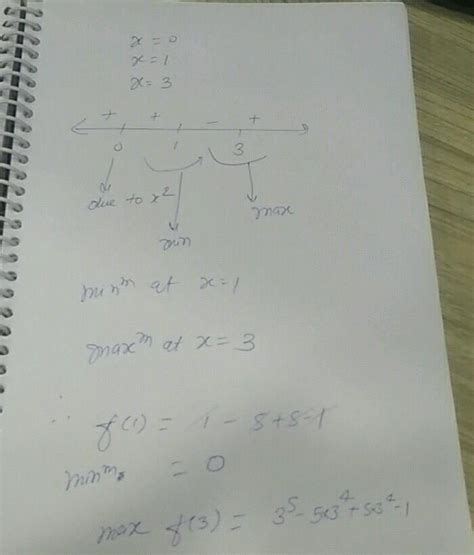 x = 0
x = 1
x = 3
+ + − +
0 1 3
due to x²
max
min
minᵐ at x = 1
maxᵐ at x = 3
∴ f(1) = 1 - 5 + 5 - 1
minᵐ. = 0
max f(3) = 3⁵ - 5x3⁴ + 5x3⁴ - 1